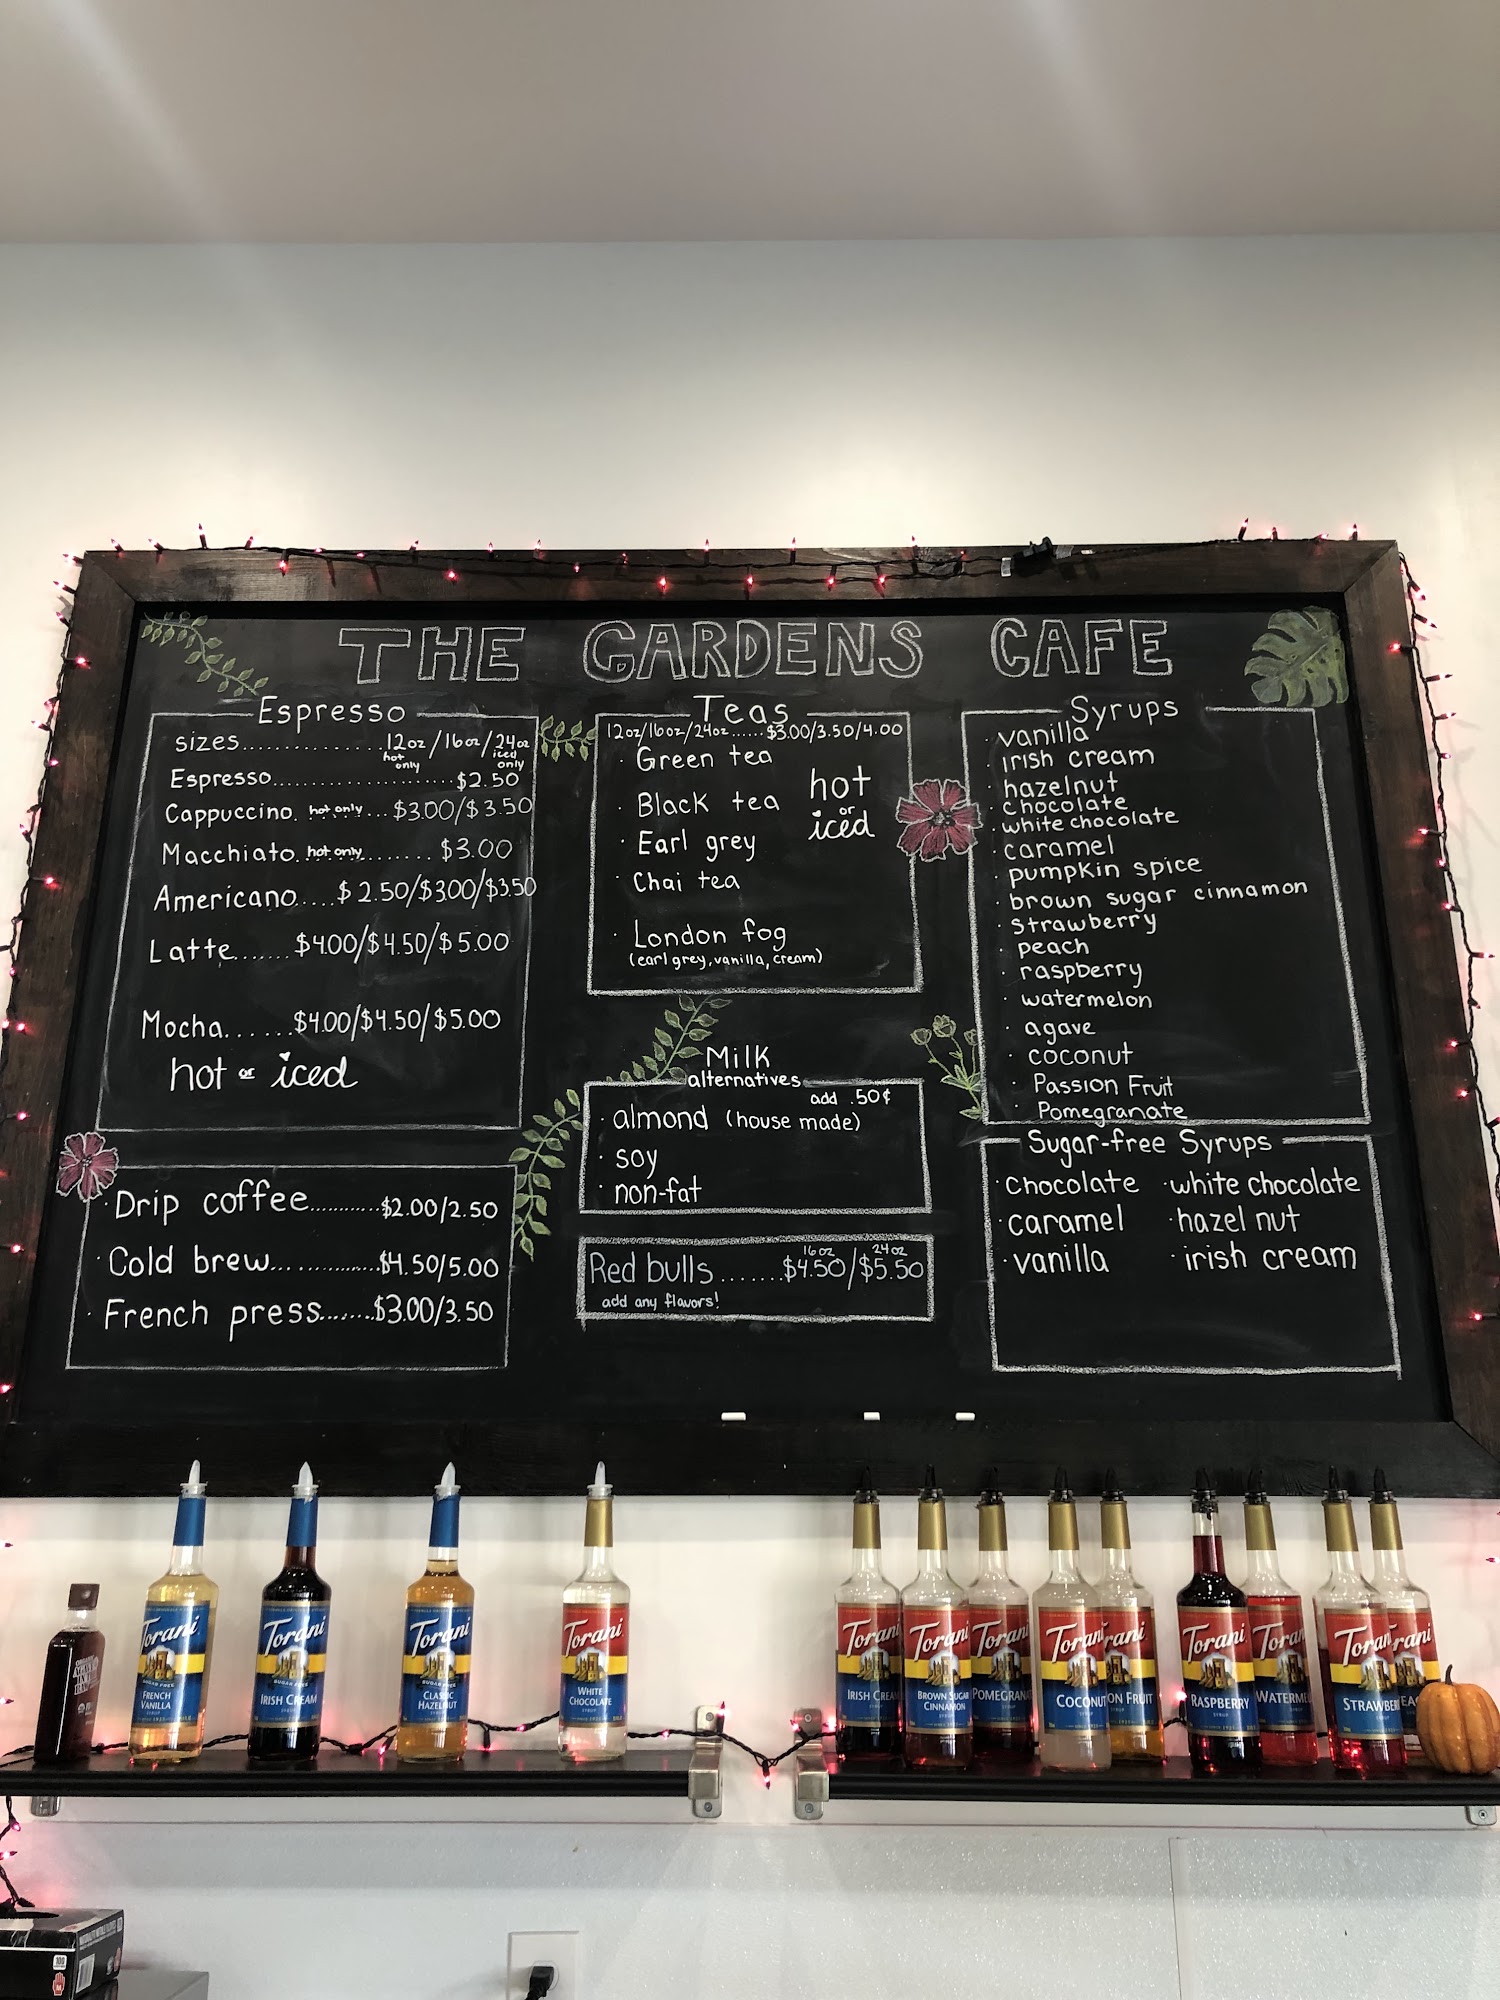 THE GARDENS CAFE
Espresso
sizes....................12oz/16oz/24oz
hot only
iced only
Espresso.........................$2.50
Cappuccino. hot only....$3.00/$3.50
Macchiato. hot only.........$3.00
Americano.....$2.50/$3.00/$3.50
Latte.......$4.00/$4.50/$5.00
Mocha.......$4.00/$4.50/$5.00
hot or iced
· Drip coffee...........$2.00/2.50
· Cold brew................$4.50/5.00
· French press.......$3.00/3.50
Teas
12oz/16oz/24oz......$3.00/3.50/4.00
· Green tea
· Black tea
· Earl grey
· Chai tea
hot
or
iced
· London fog
(earl grey, vanilla, cream)
Milk
alternatives
add .50¢
· almond (house made)
· soy
· non-fat
16oz 24oz
Red bulls.......$4.50/$5.50
add any flavors!
Syrups
· vanilla
· irish cream
· hazelnut
· chocolate
· white chocolate
· caramel
· pumpkin spice
· brown sugar cinnamon
· strawberry
· peach
· raspberry
· watermelon
· agave
· coconut
· Passion Fruit
· Pomegranate
Sugar-free Syrups
· chocolate · white chocolate
· caramel · hazel nut
· vanilla · irish cream
Torani
SUGAR FREE
FRENCH
VANILLA
SYRUP
Torani
SUGAR FREE
IRISH CREAM
SYRUP
Torani
SUGAR FREE
CLASSIC
HAZELNUT
SYRUP
Torani
WHITE
CHOCOLATE
SYRUP
Torani
IRISH CREAM
Torani
BROWN SUGAR
CINNAMON
SYRUP
Torani
POMEGRANA
Torani
COCONUT
SYRUP
rani
ON FRUIT
Torani
RASPBERRY
SYRUP
Torani
WATERME
Torani
STRAWBER
SYRUP
rani
EAC
100
M